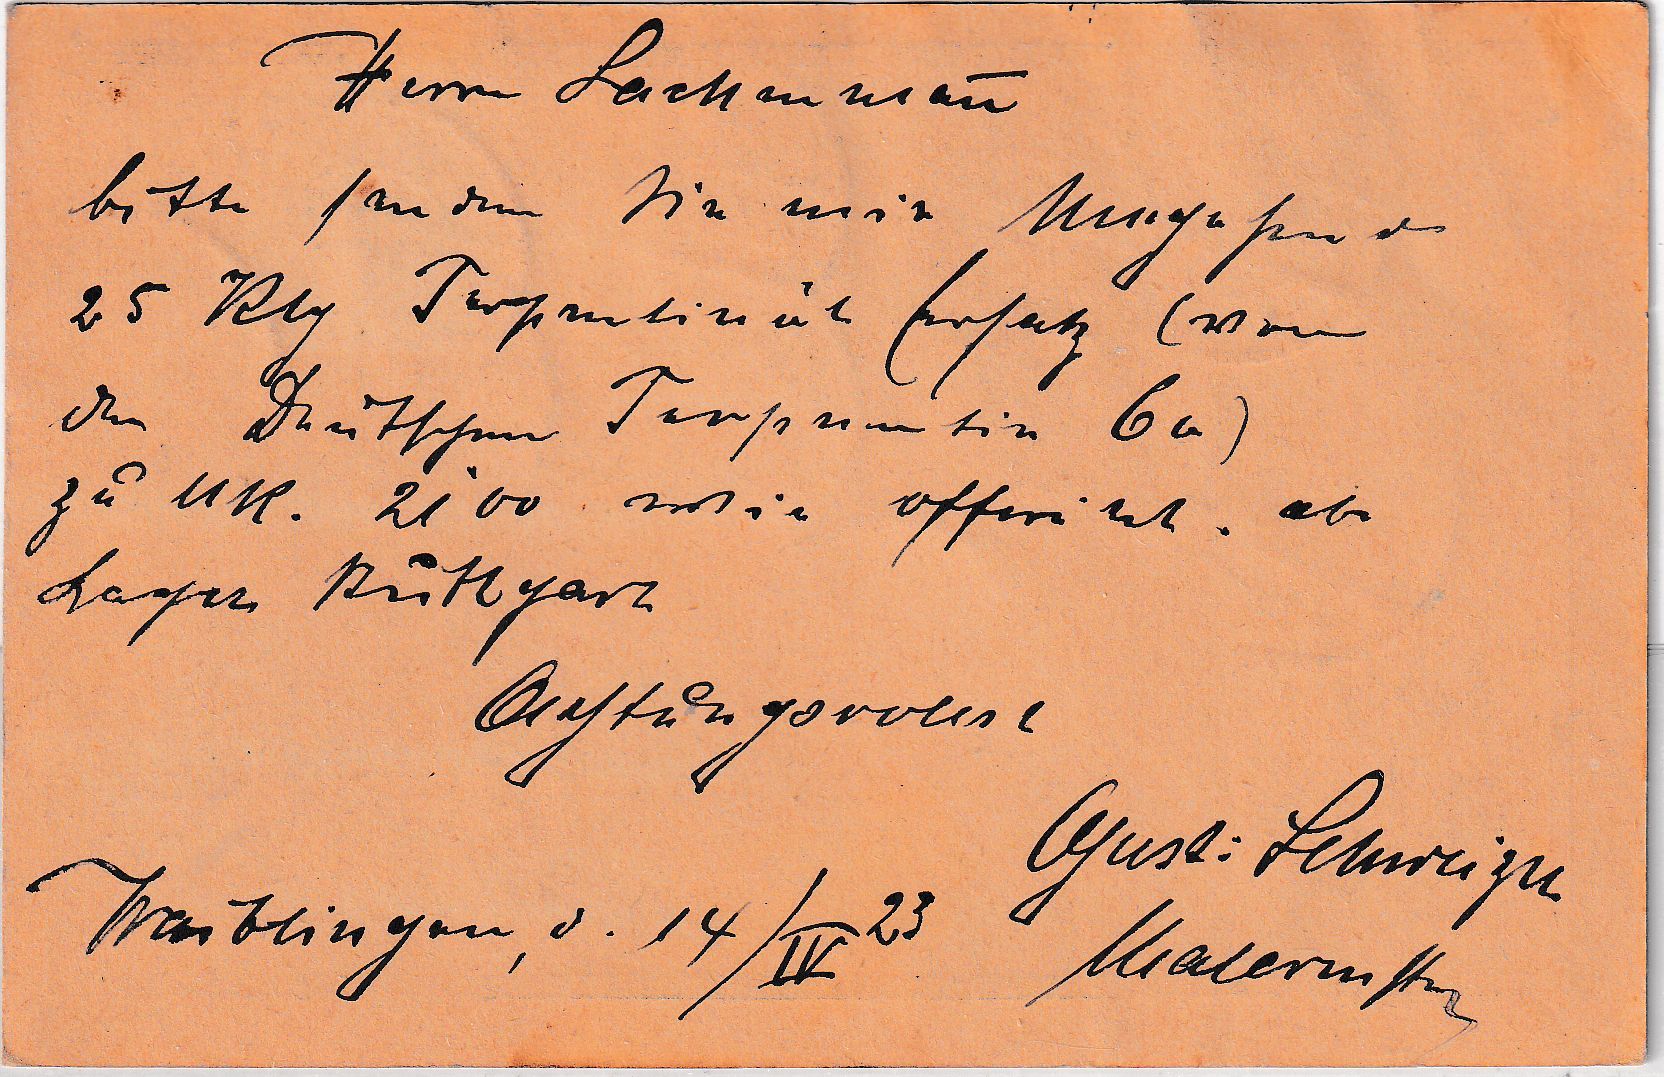 Herrn Lachenmann
bitte senden Sie mir Umgehend
25 Klg Terpentinöl Ersatz (von
der Deutschen Terpentin Co)
zu MK. 2100 wie offerirt. ab
Lager Stuttgart
Achtungsvollst
Gust: Schweizer
Malermstr
Waiblingen, d. 14/IV 23